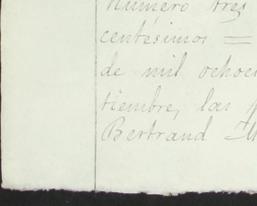 Número tres
centésimos =
de mil ochoc
tiembre, las
Bertrand